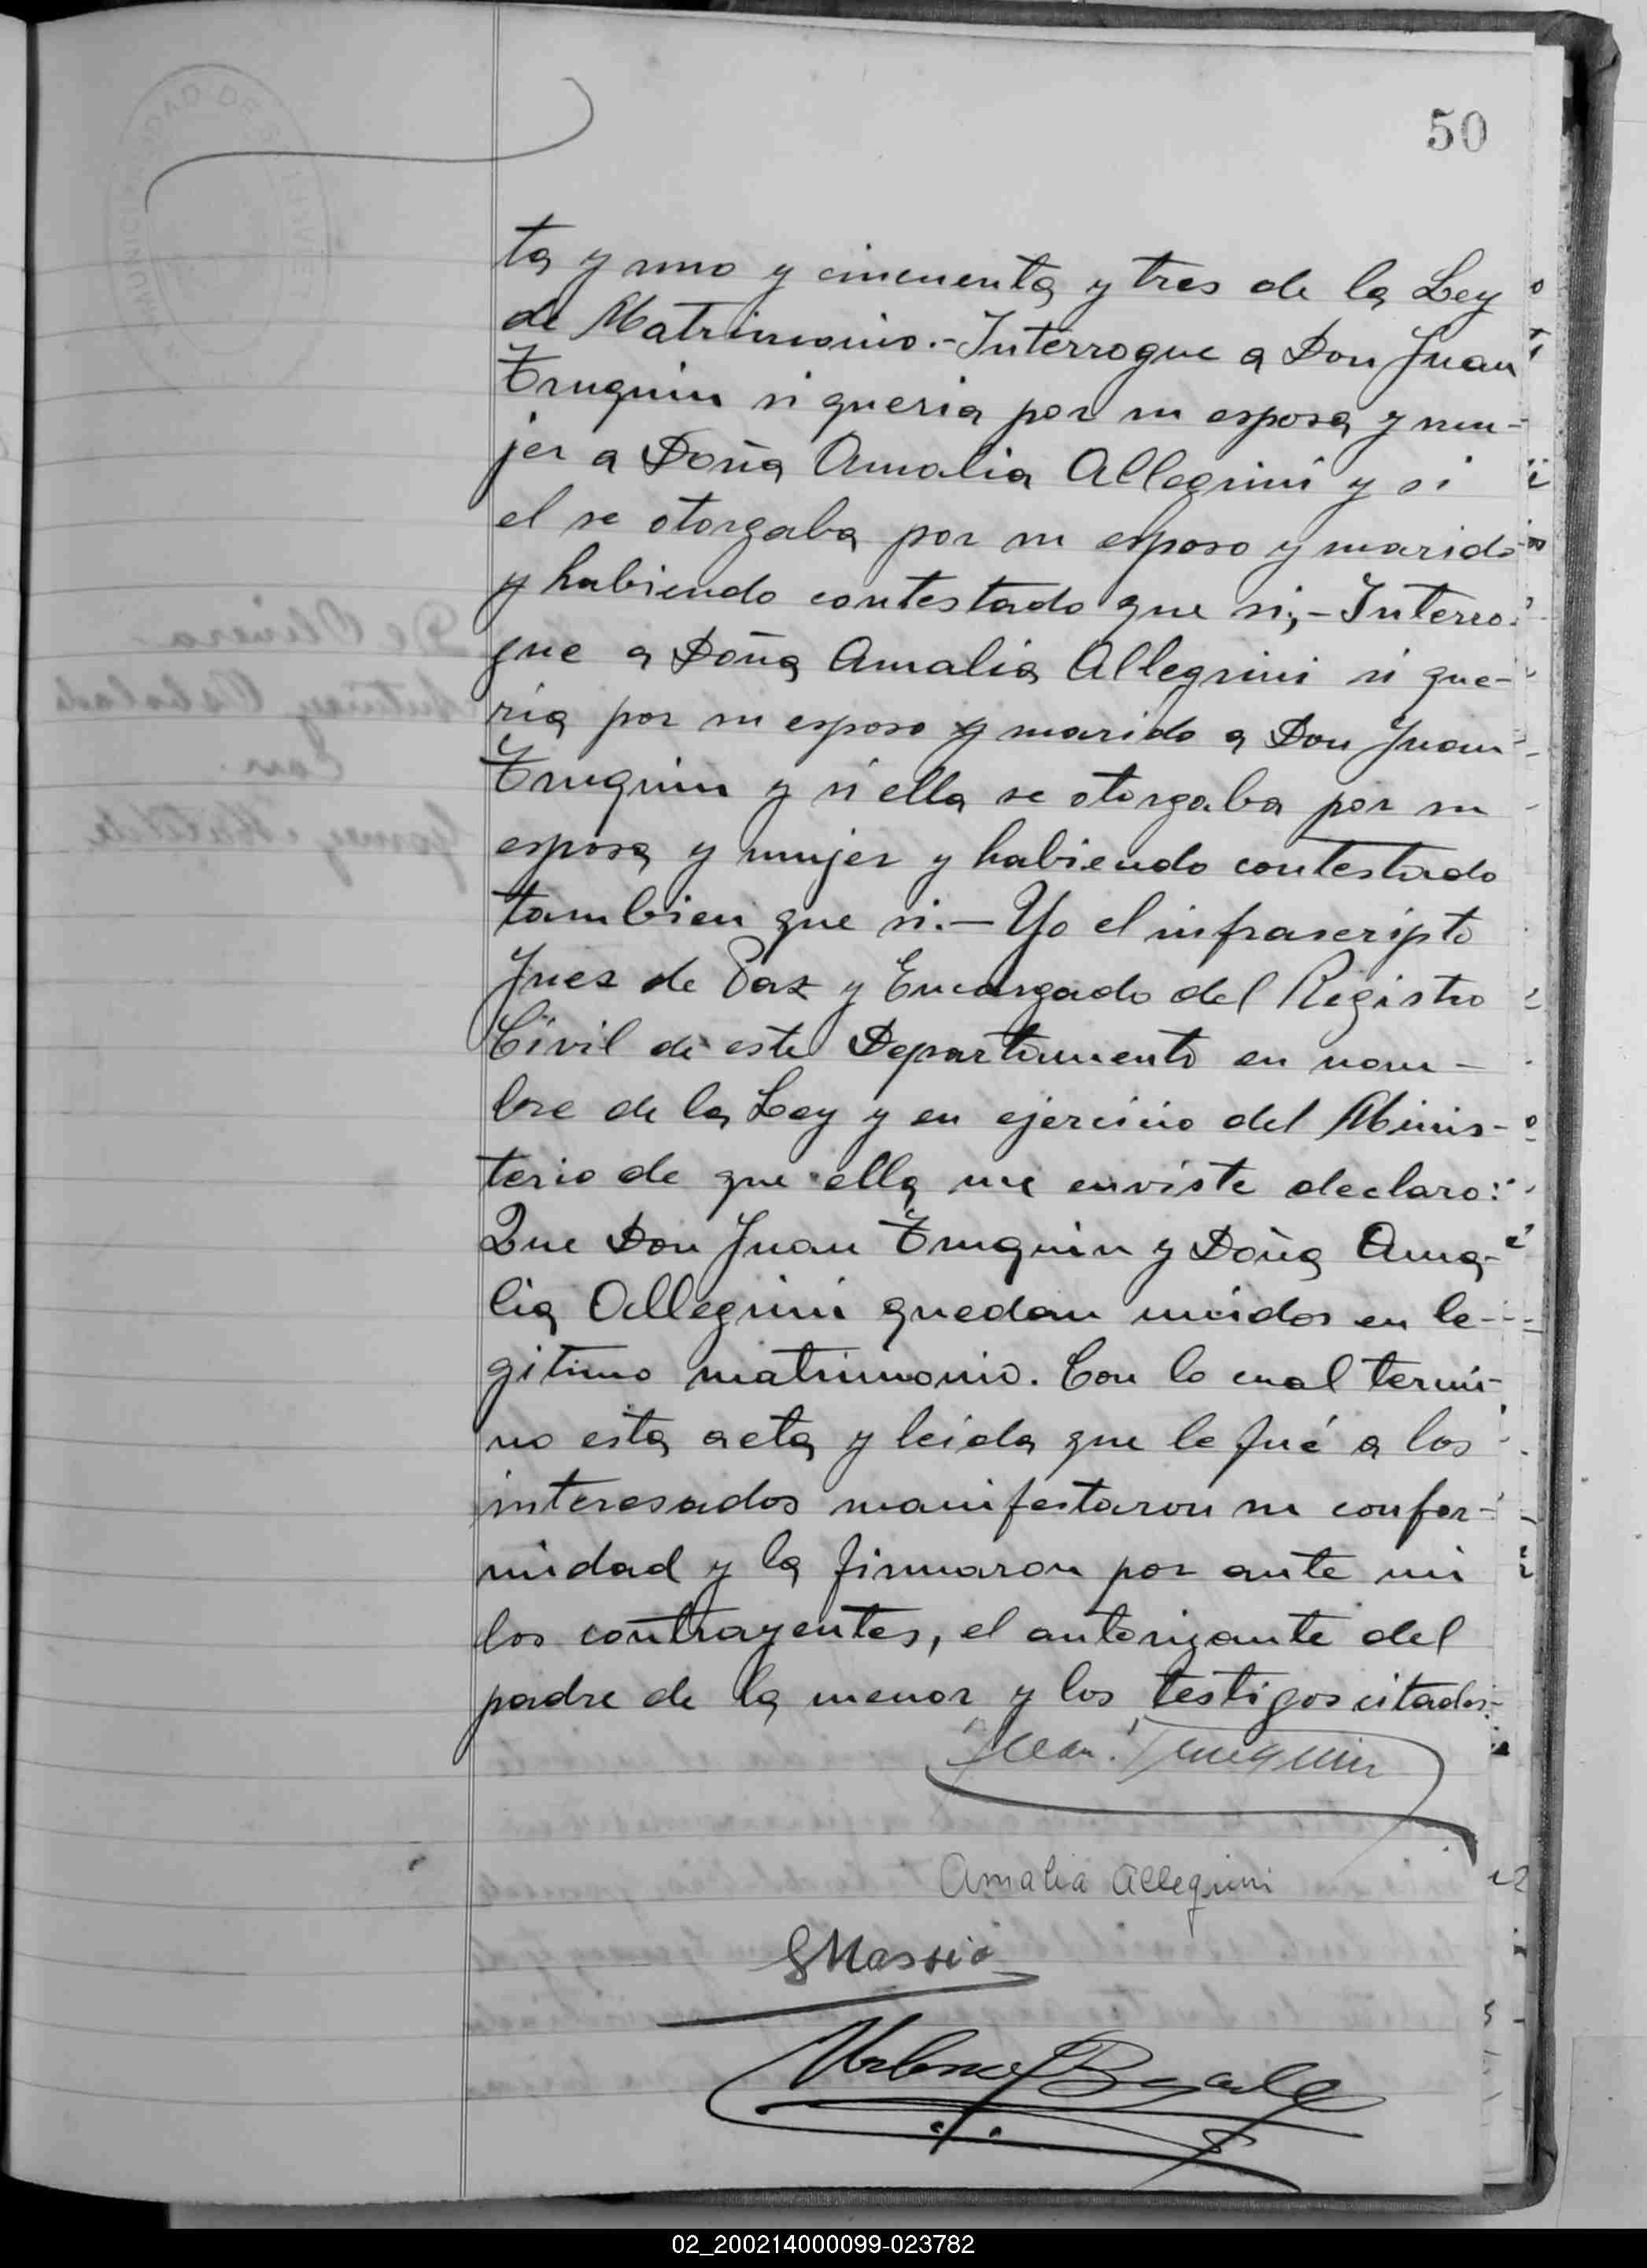 50
ta y uno y cincuenta y tres de la Ley
de Matrimonio.- Interrogue a Don Juan
Truquin si queria por su esposa y mu-
jer a Doña Amalia Allegrini y si
el se otorgaba por su esposo y marido
y habiendo contestado que si,- Interro-
gue a Doña Amalia Allegrini si que-
ria por su esposo y marido a Don Juan
Truquin y si ella se otorgaba por su
esposa y mujer y habiendo contestado
tambien que si.- Yo el infrascripto
Juez de Paz y Encargado del Registro
Civil de este Departamento en nom-
bre de la Ley y en ejercicio del Minis-
terio de que ella me enviste declaro:
Que Don Juan Truquin y Doña Ama-
lia Allegrini quedan unidos en le-
gitimo matrimonio. Con lo cual termi-
no esta acta y leida que le fué a los
interesados manifestaron su confor-
midad y la firmaron por ante mi
los contrayentes, el autorizante del
padre de la menor y los testigos citados.-
Juan Truquin
Amalia Allegrini
Massió
02_200214000099-023782